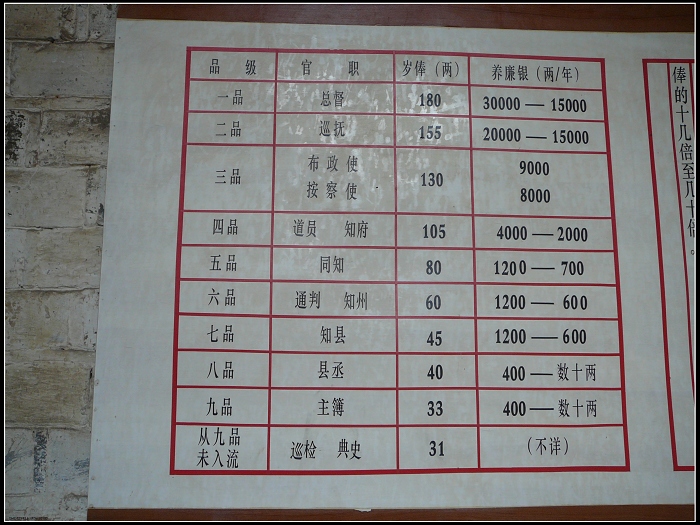 品 级 官 职 岁俸（两） 养廉银（两/年）
一品 总督 180 30000 — 15000
二品 巡抚 155 20000 — 15000
三品 布政使 130 9000
按察使 8000
四品 道员 知府 105 4000 — 2000
五品 同知 80 1200 — 700
六品 通判 知州 60 1200 — 600
七品 知县 45 1200 — 600
八品 县丞 40 400 — 数十两
九品 主簿 33 400 — 数十两
从九品
未入流 巡检 典史 31 （不详）
俸的十几倍至几十倍。